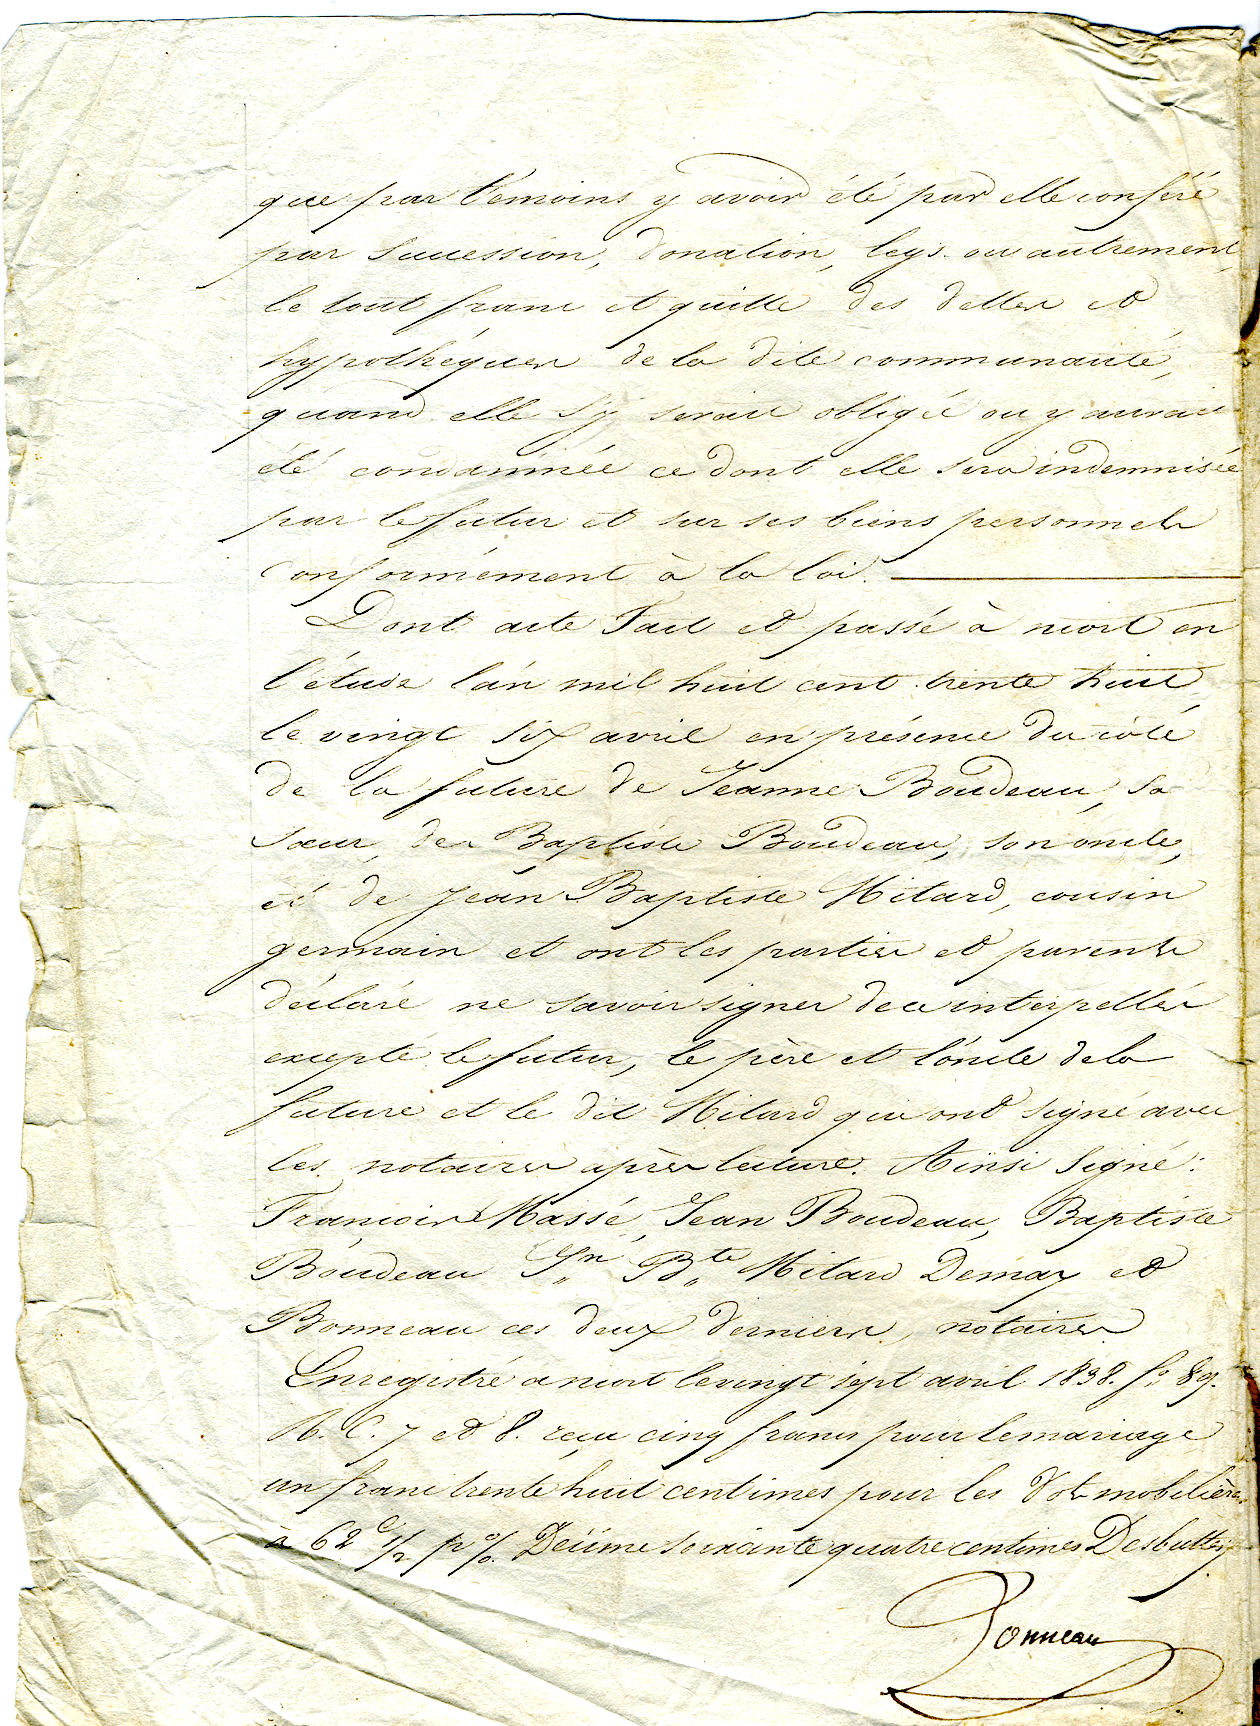 que par témoins y avoir été par elle conféré
par succession, donation, legs ou autrement,
le tout franc et quitte des dettes et
hypothéques de la dite communauté,
quand elle s'y serait obligée ou y aurait
été condamnée ce dont elle sera indemnisée
par le futur et sur ses biens personnels
conformément à la loi.
Dont acte Fait et passé à niort en
l'étude l'an mil huit cent trente huit
le vingt six avril en présence du côté
de la future de Jeanne Boudeau, sa
sœur, de Baptiste Boudeau, son oncle,
et de Jean Baptiste Mitard, cousin
germain et ont les parties et parents
déclaré ne savoir signer de ce interpellés
excepté le futur, le père et l'oncle de la
future et le dit Mitard qui ont signé avec
les notaires après lecture. Ainsi Signé:
François Massé, Jean Boudeau, Baptiste
Boudeau Jn Bte Mitard Demay et
Bonneau ces deux derniers, notaires
Enregistré a niort le vingt sept avril 1838. fo 89.
R. C. 7 et 8. reçu cinq francs pour le mariage
un franc trente huit centimes pour les Dots mobilières
à 62c 1/2 p % Décime soixante quatre centimes
Bonneau